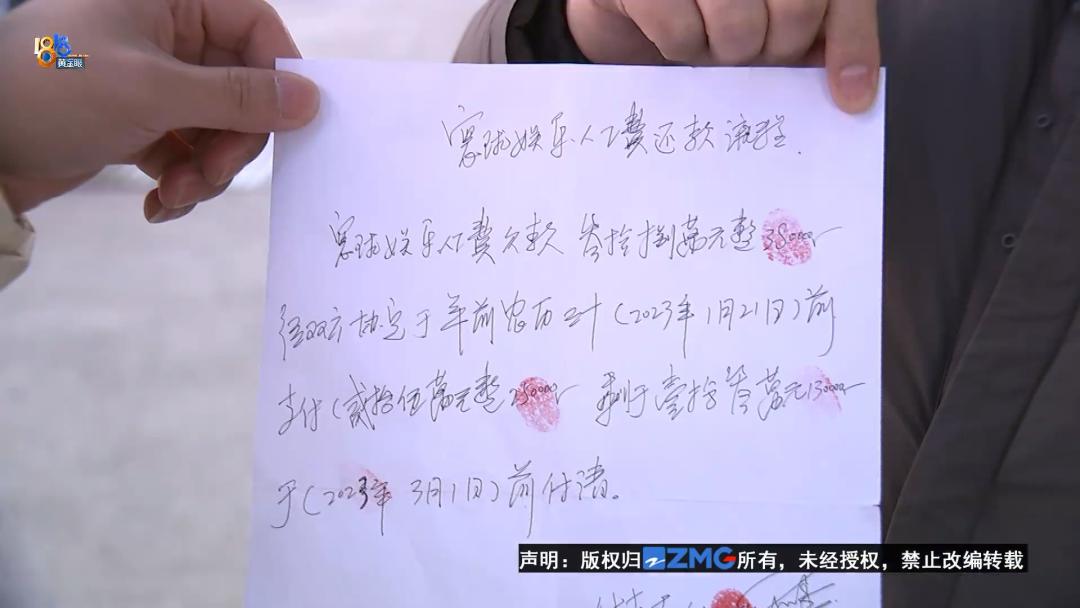 1818
黄金眼
寰球娱乐人工费还款流程.
寰球娱乐人工费欠款 叁拾捌萬元整380000
经双方协定于年前农历三十(2023年1月21日)前
支付(贰拾伍萬元整250000 剩于壹拾叁萬元130000
于(2023年3月1日)前付清。
声明：版权归ZMG所有，未经授权，禁止改编转载